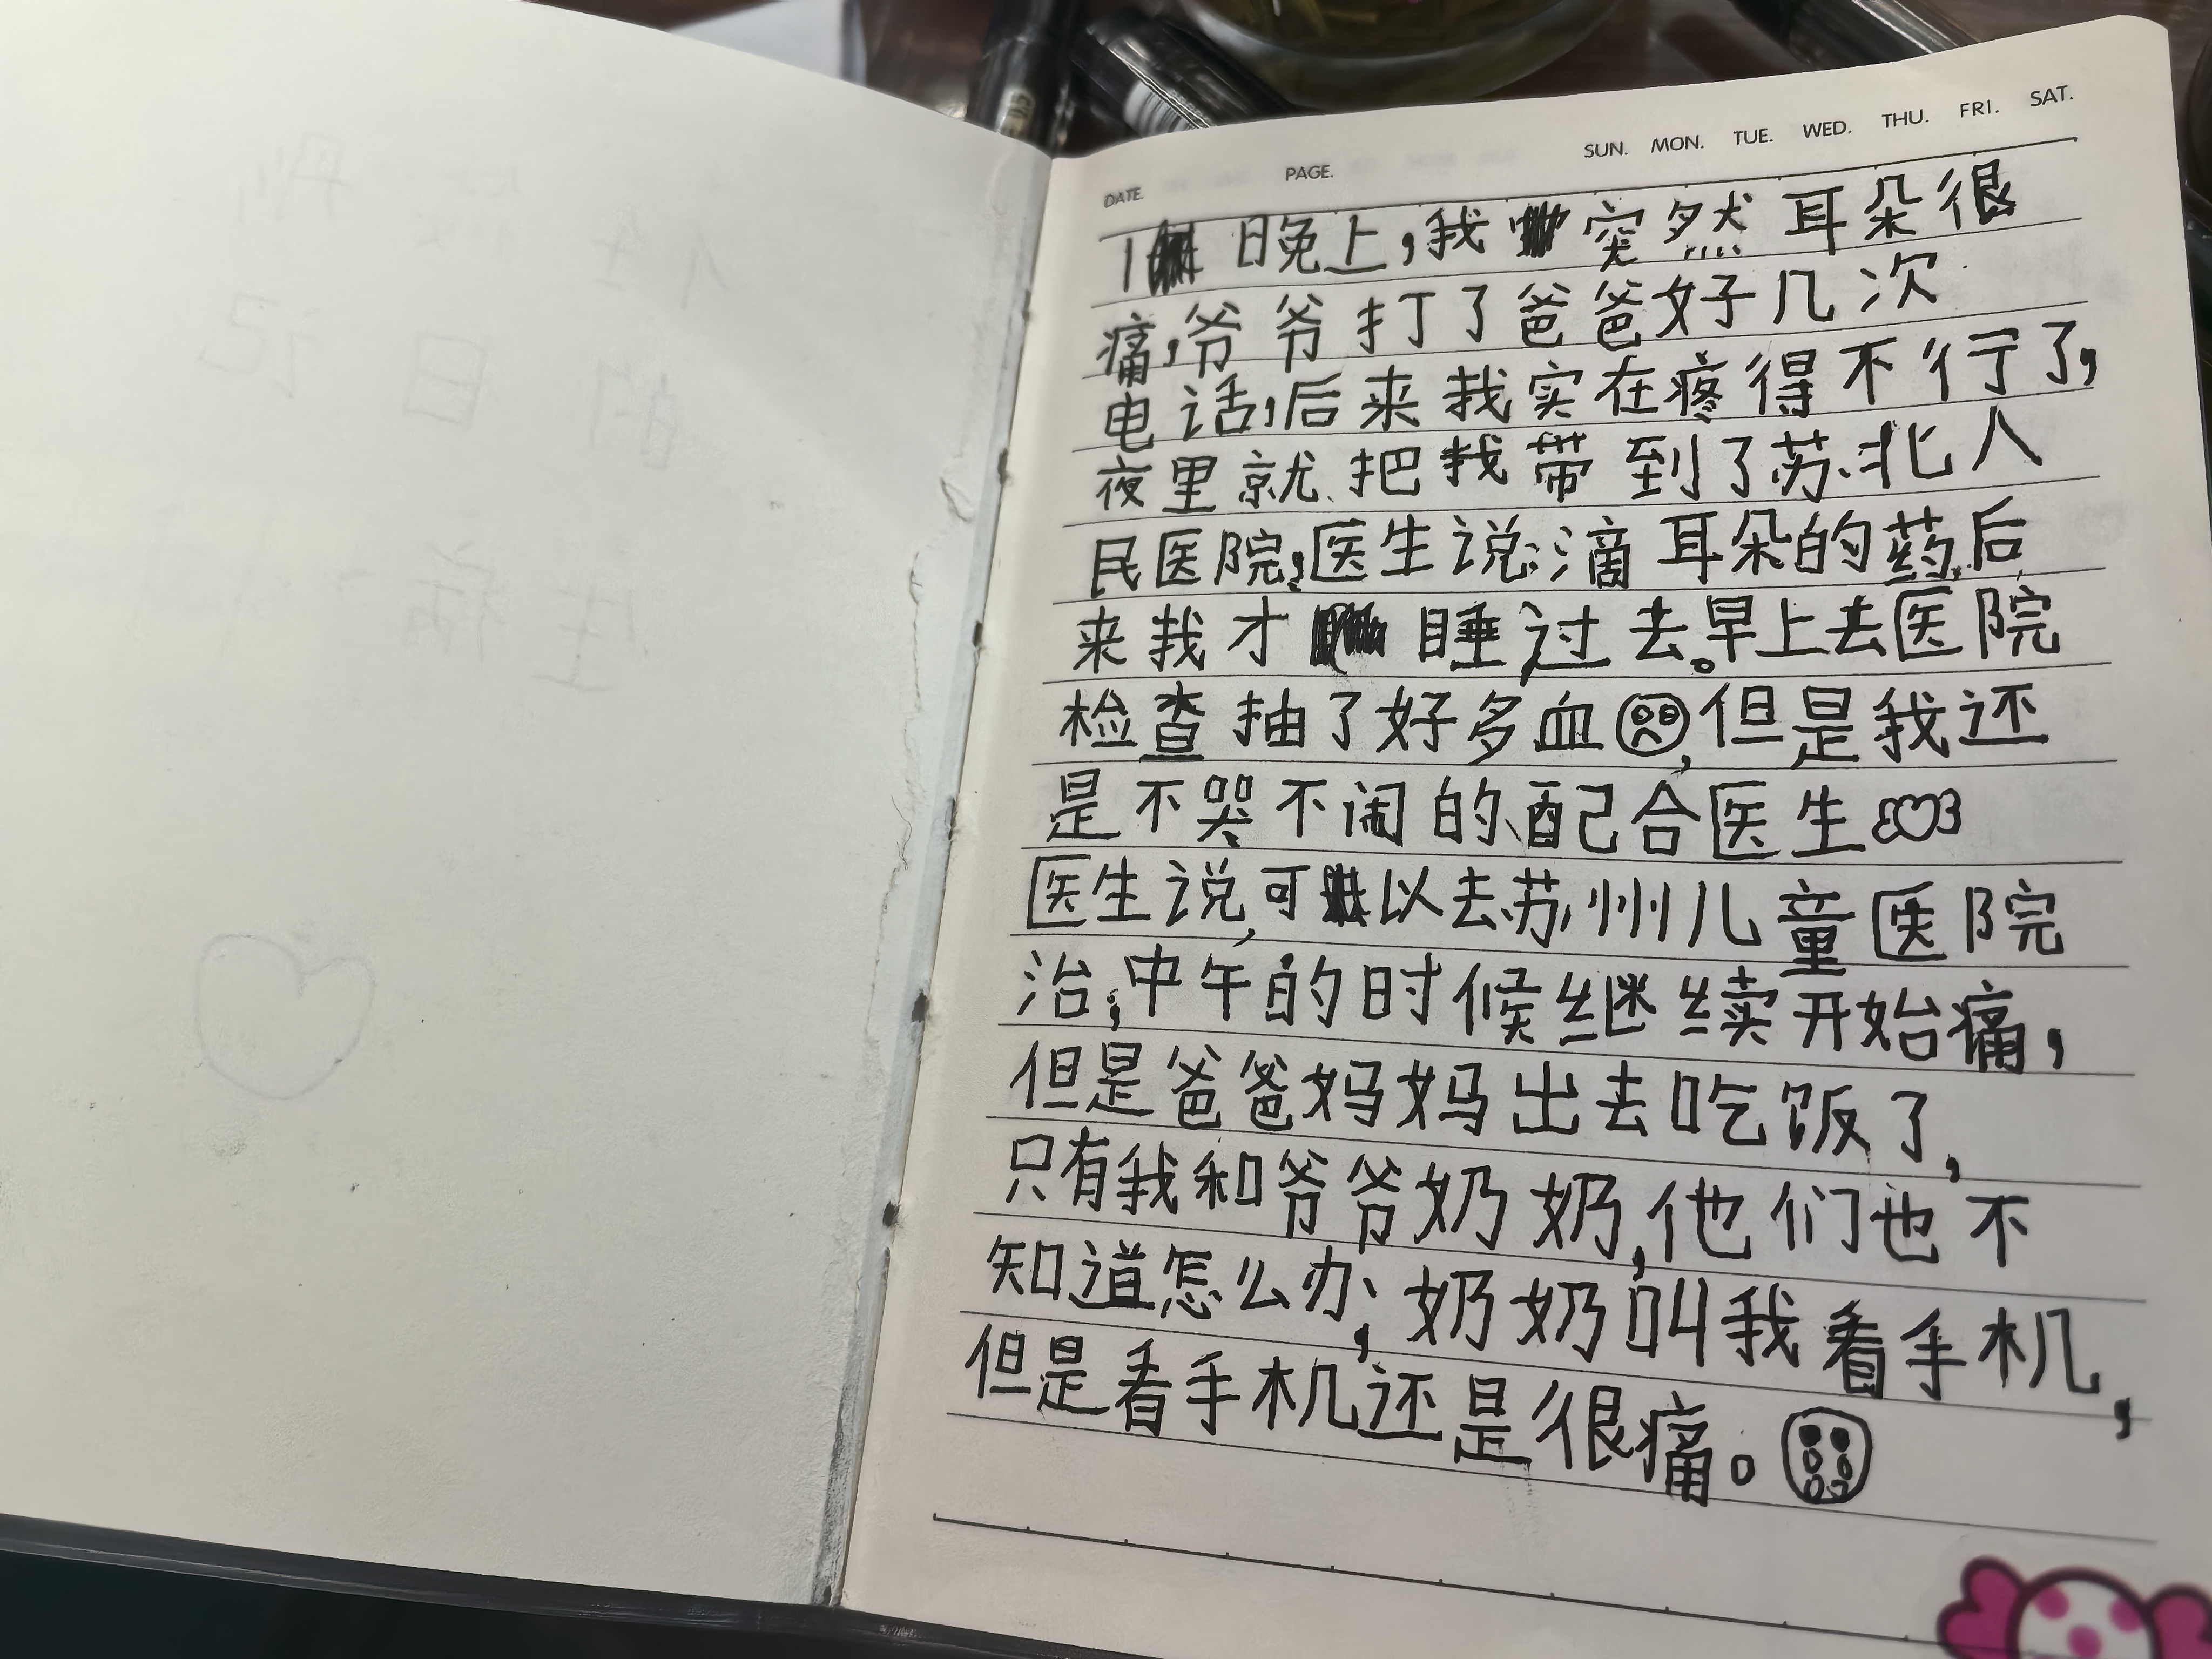 DATE. PAGE. SUN. MON. TUE. WED. THU. FRI. SAT.
1 日晚上,我突然耳朵很
痛,爷爷打了爸爸好几次
电话,后来我实在疼得不行了,
夜里就把我带到了苏北人
民医院,医生说:滴耳朵的药,后
来我才睡过去。早上去医院
检查抽了好多血,但是我还
是不哭不闹的配合医生
医生说,可以去苏州儿童医院
治,中午的时候继续开始痛,
但是爸爸妈妈出去吃饭了,
只有我和爷爷奶奶,他们也不
知道怎么办,奶奶叫我看手机,
但是看手机还是很痛。